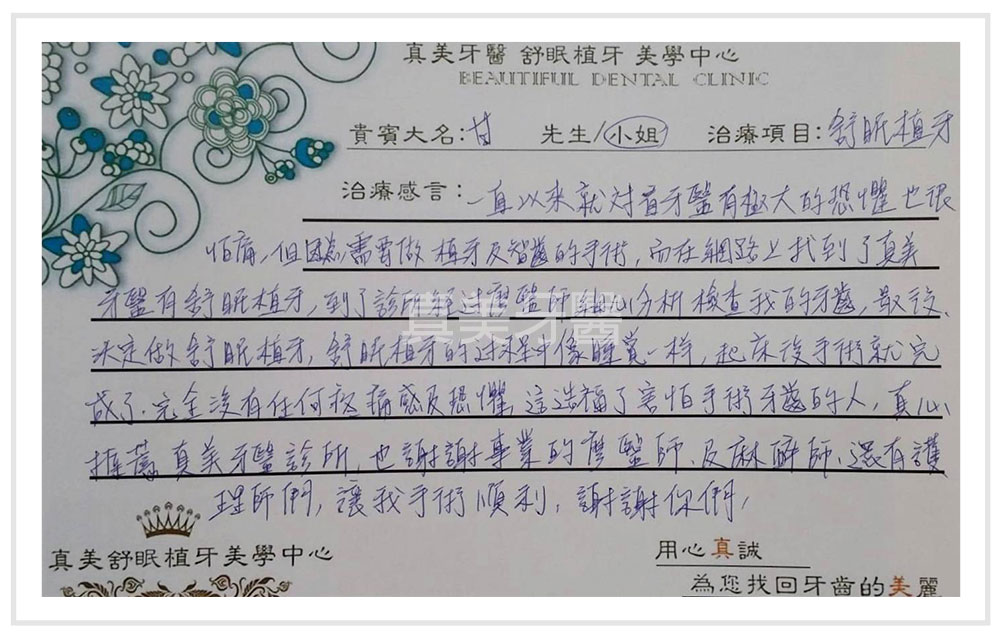 真美牙醫 舒眠植牙 美學中心
BEAUTIFUL DENTAL CLINIC
貴賓大名:甘 先生/小姐 治療項目:舒眠植牙
治療感言:一直以來就対着牙醫有極大的恐懼也很
怕痛,但因為需要做植牙及智齒的手術,而在網路上找到了真美
牙醫有舒眠植牙,到了診所經过廖醫師細心分析檢查我的牙齒,最後
決定做舒眠植牙,舒眠植牙的过程中像睡覚一样,起床後手術就完
成了.完全没有任何疼痛感及恐懼,這造福了害怕手術牙齒的人,真心
推薦真美牙醫診所,也謝謝專業的廖醫師、及麻醉師、還有護
理師們,讓我手術順利,謝謝你們,
真美牙醫
真美舒眠植牙美學中心
用心真誠
為您找回牙齒的美麗